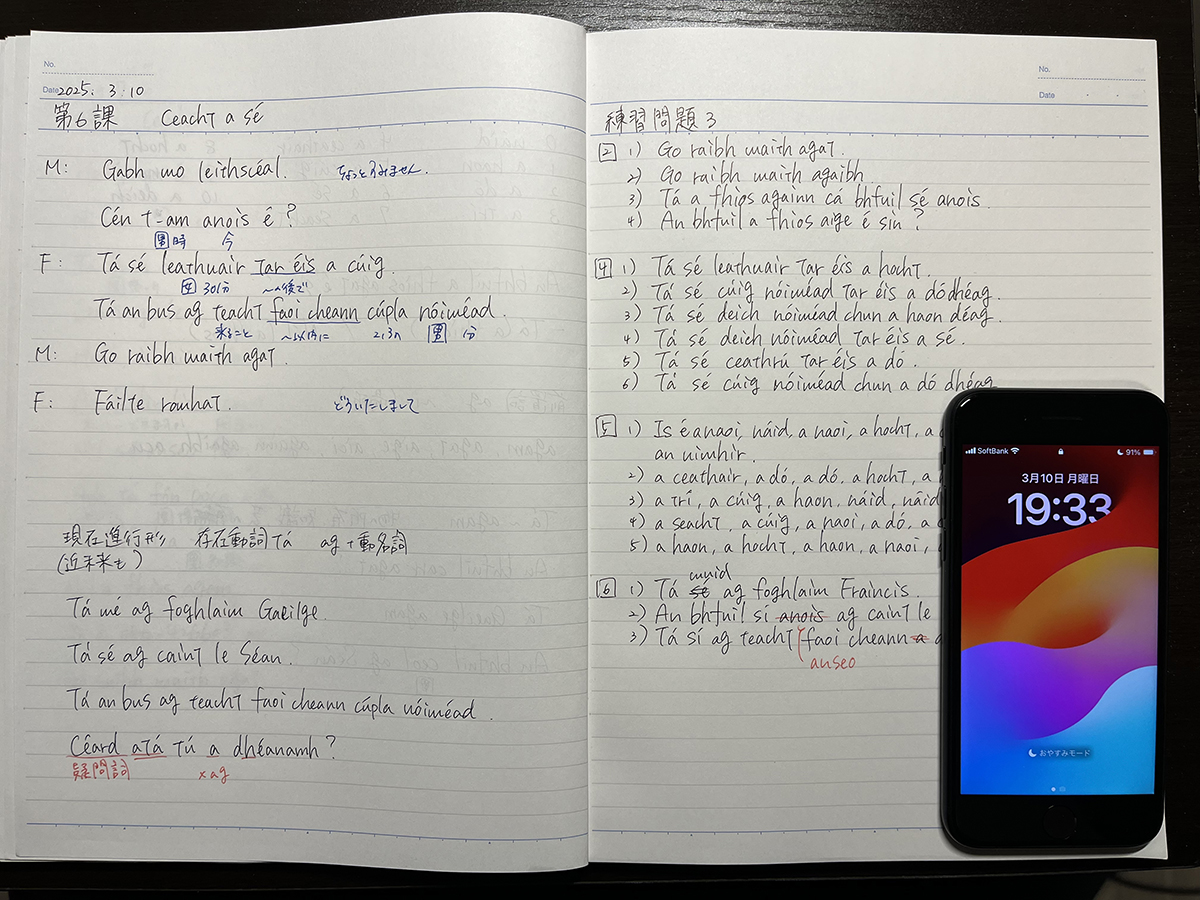 No.
Date 2025. 3. 10
第6課 Ceacht a sé
M: Gabh mo leithscéal. ちょっとすみません.
Cén t-am anois é?
男 時 今
F: Tá sé leathuair tar éis a cúig.
女 30分 ～の後で
Tá an bus ag teacht faoi cheann cúpla nóiméad.
来ること ～以内に 2,3の 男 分
M: Go raibh maith agat.
F: Fáilte romhat. どういたしまして
現在進行形 存在動詞 Tá ag + 動名詞
(近未来も)
Tá mé ag foghlaim Gaeilge.
Tá sé ag caint le Seán.
Tá an bus ag teacht faoi cheann cúpla nóiméad.
Céard atá tú a dhéanamh?
疑問詞 × ag
No.
Date
練習問題 3
2 1) Go raibh maith agat.
2) Go raibh maith agaibh
3) Tá a fhios againn cá bhfuil sé anois.
4) An bhfuil a fhios aige é sin?
4 1) Tá sé leathuair tar éis a hocht.
2) Tá sé cúig nóiméad tar éis a dódhéag.
3) Tá sé deich nóiméad chun a haon déag.
4) Tá sé deich nóiméad tar éis a sé.
5) Tá sé ceathrú tar éis a dó.
6) Tá sé cúig nóiméad chun a dó dhéag
5 1) Is é a naoi, náid, a naoi, a hocht, a
an uimhir.
2) a ceathair, a dó, a dó, a hocht, a
3) a trí, a cúig, a haon, náid, náid
4) a seacht, a cúig, a naoi, a dó, a
5) a haon, a hocht, a haon, a naoi,
muid
6 1) Tá sé ag foghlaim Fraincis.
2) An bhfuil sí anois ag caint le
3) Tá sí ag teacht faoi cheann a
anseo
SoftBank 91%
3月10日 月曜日
19:33
おやすみモード